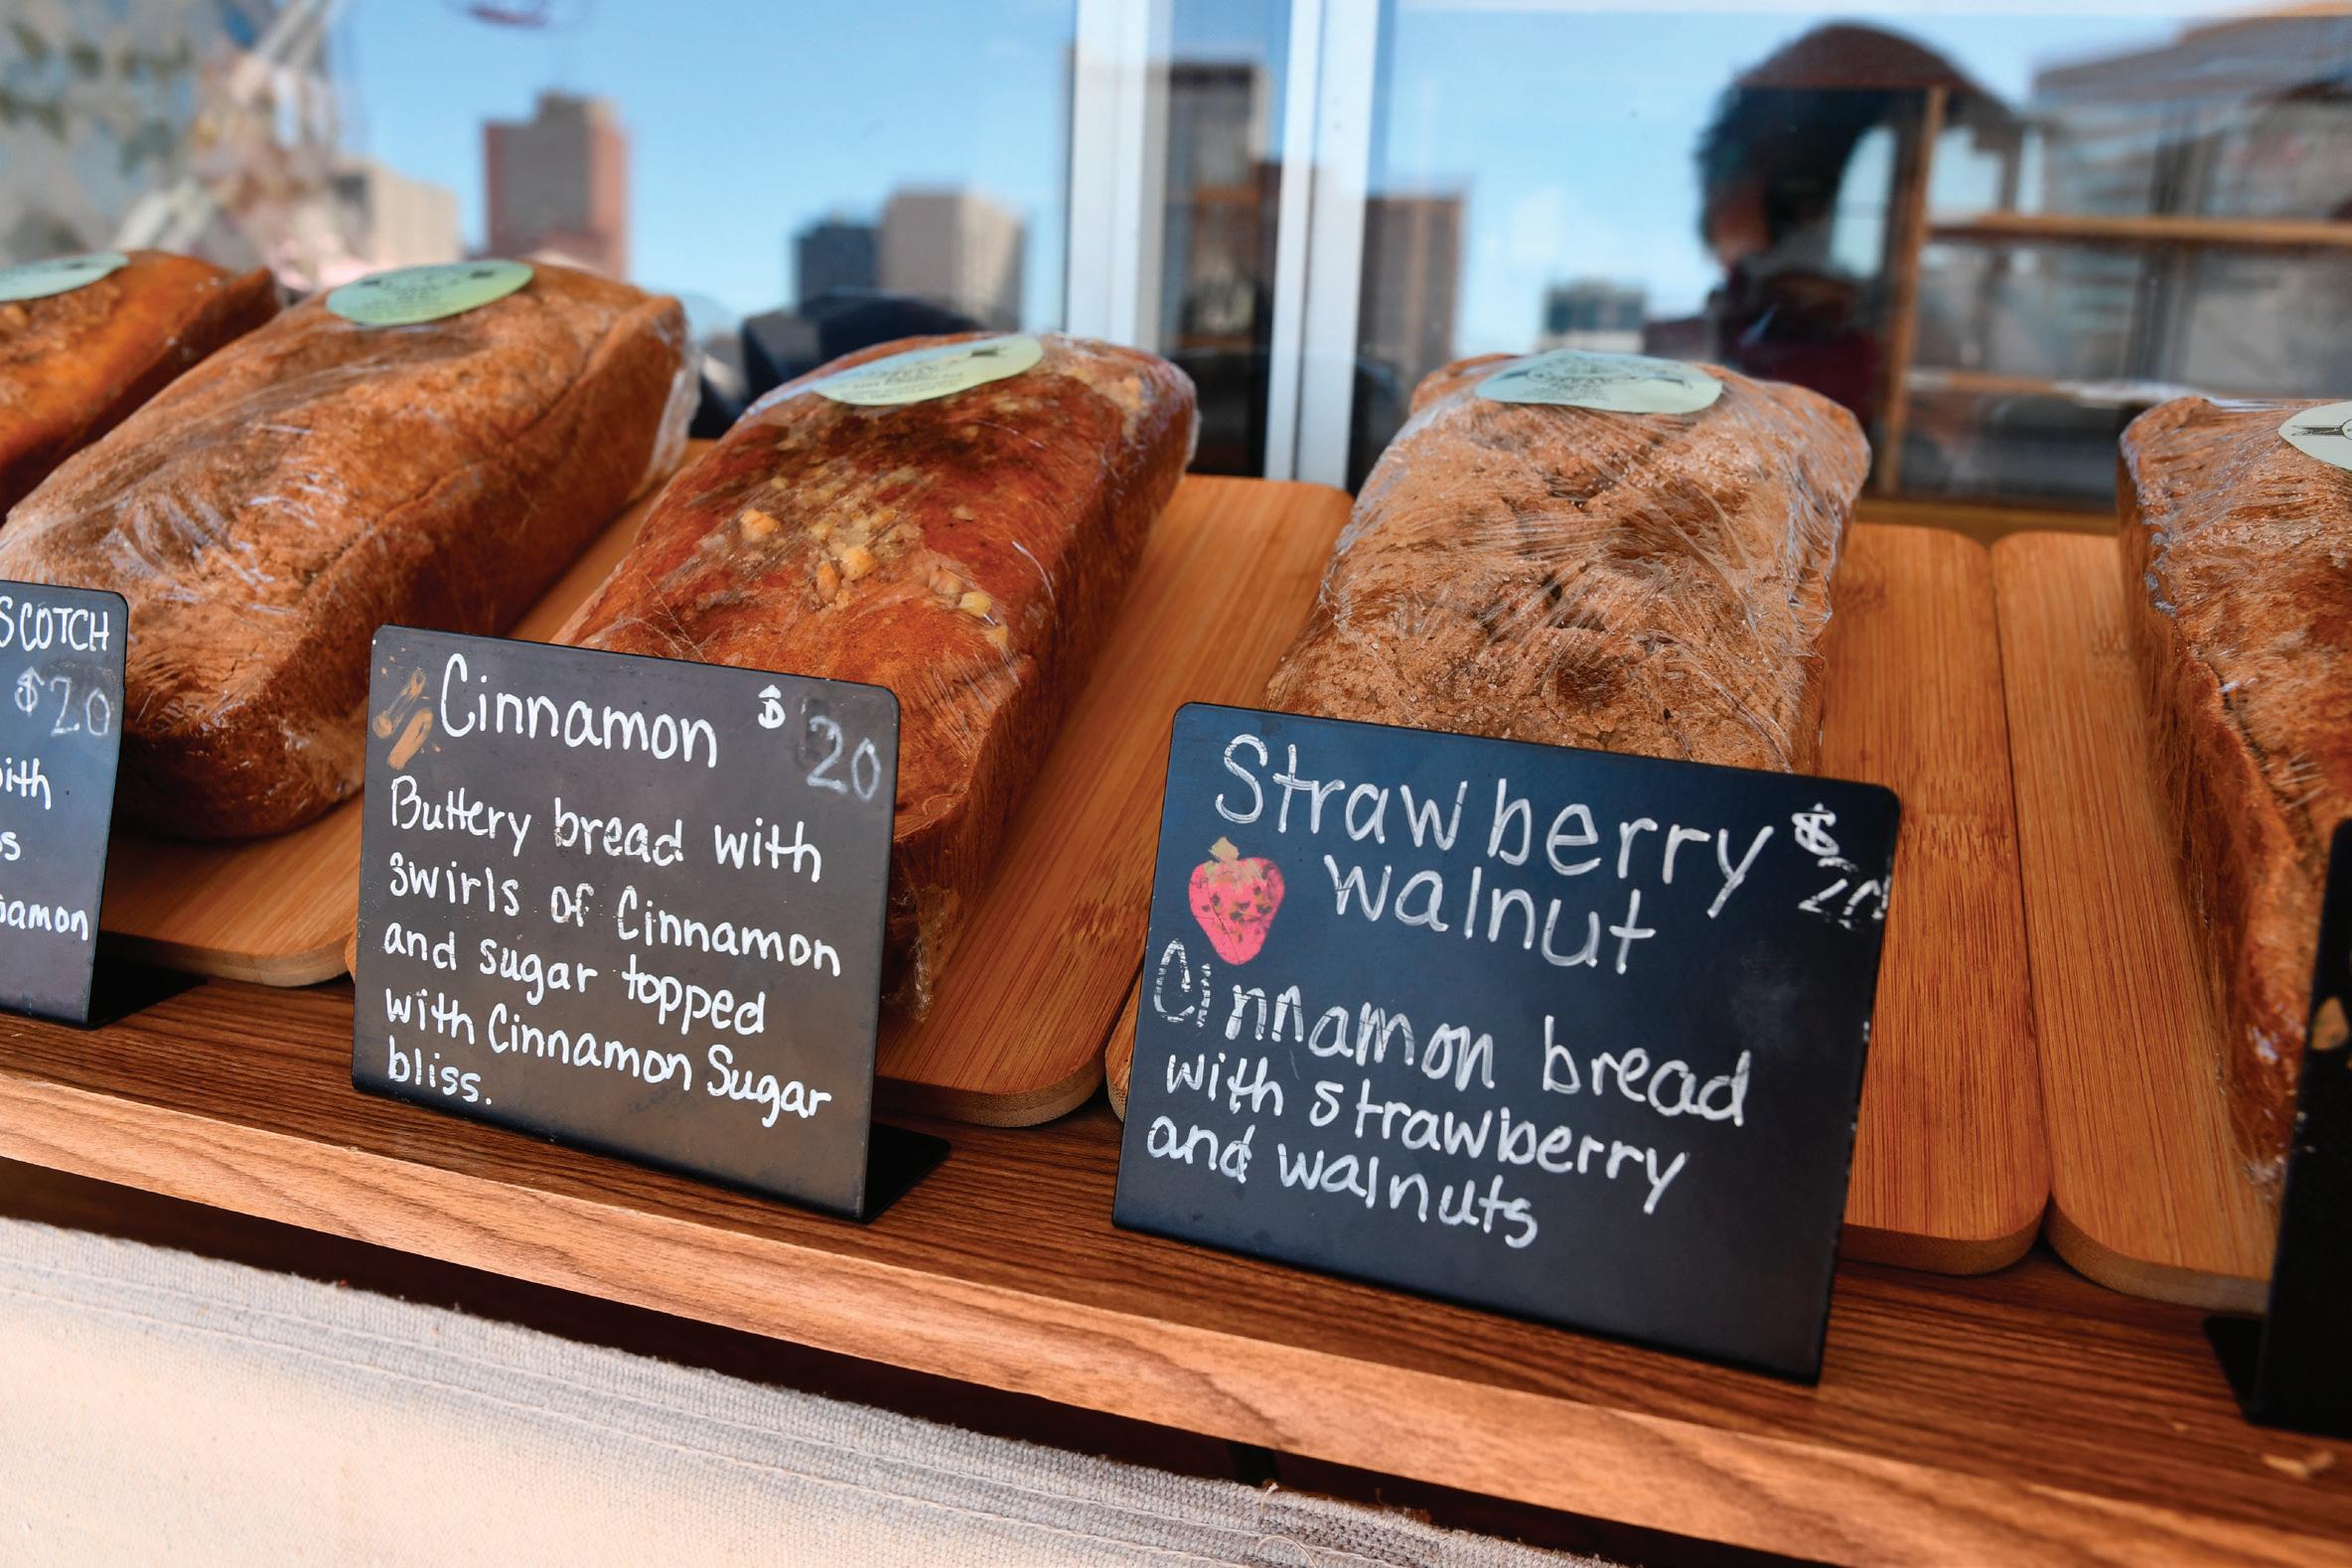 SCOTCH
$20
with
amon
Cinnamon $20
Buttery bread with
swirls of Cinnamon
and sugar topped
with Cinnamon Sugar
bliss.
Strawberry $20
walnut
Cinnamon bread
with strawberry
and walnuts